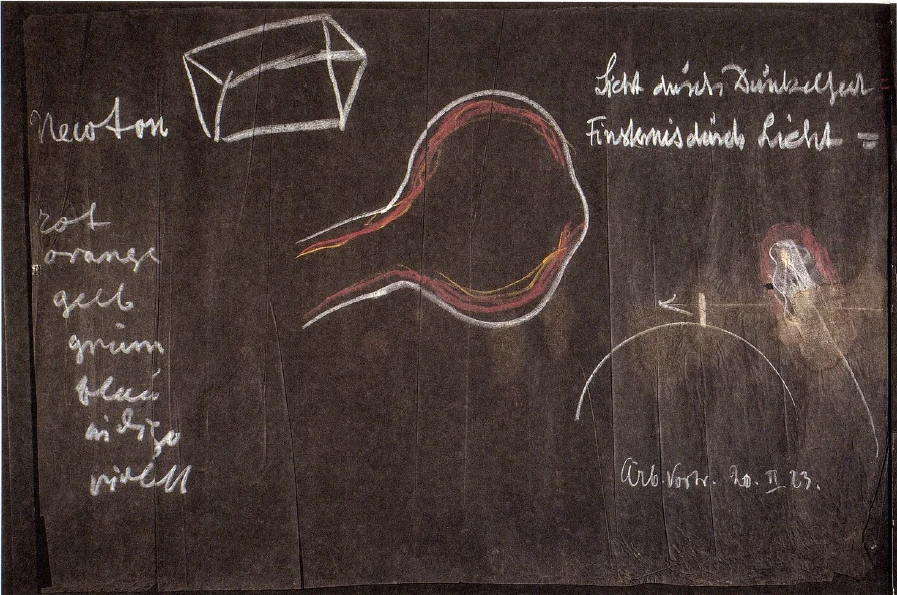 Newton
rot
orange
gelb
grün
blau
indigo
violett
Licht durch Dunkelheit =
Finsternis durch Licht =
Arb. Vortr. 20. II 23.